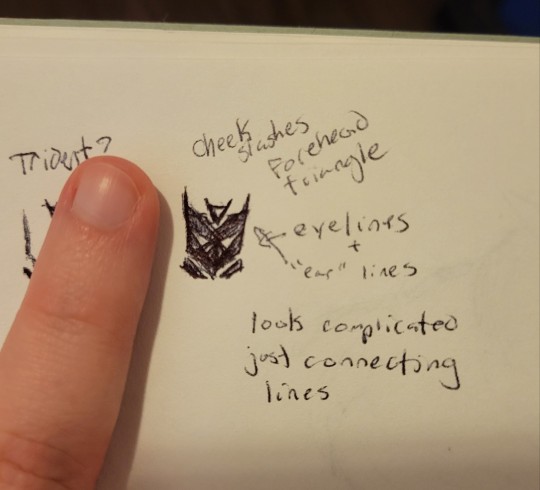 Trident?
cheek
slashes
Forehead
triangle
eyelines
+
"ear" lines
look complicated
just connecting
lines